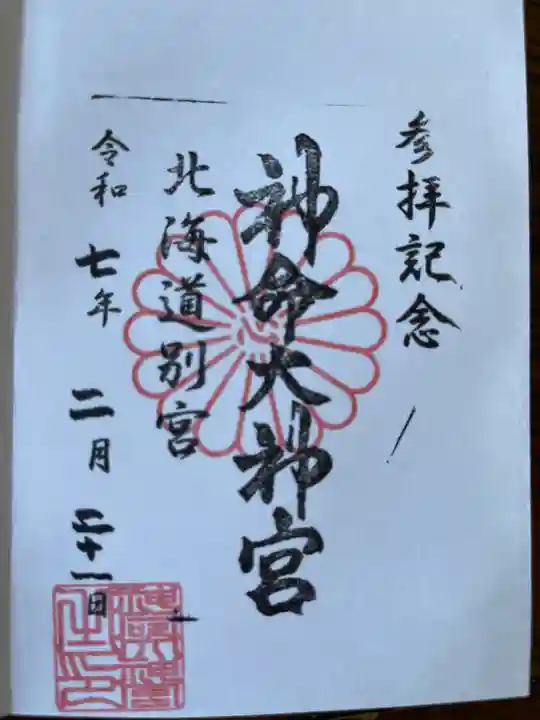 参拝記念
神命大神宮
北海道別宮
令和七年二月二十一日